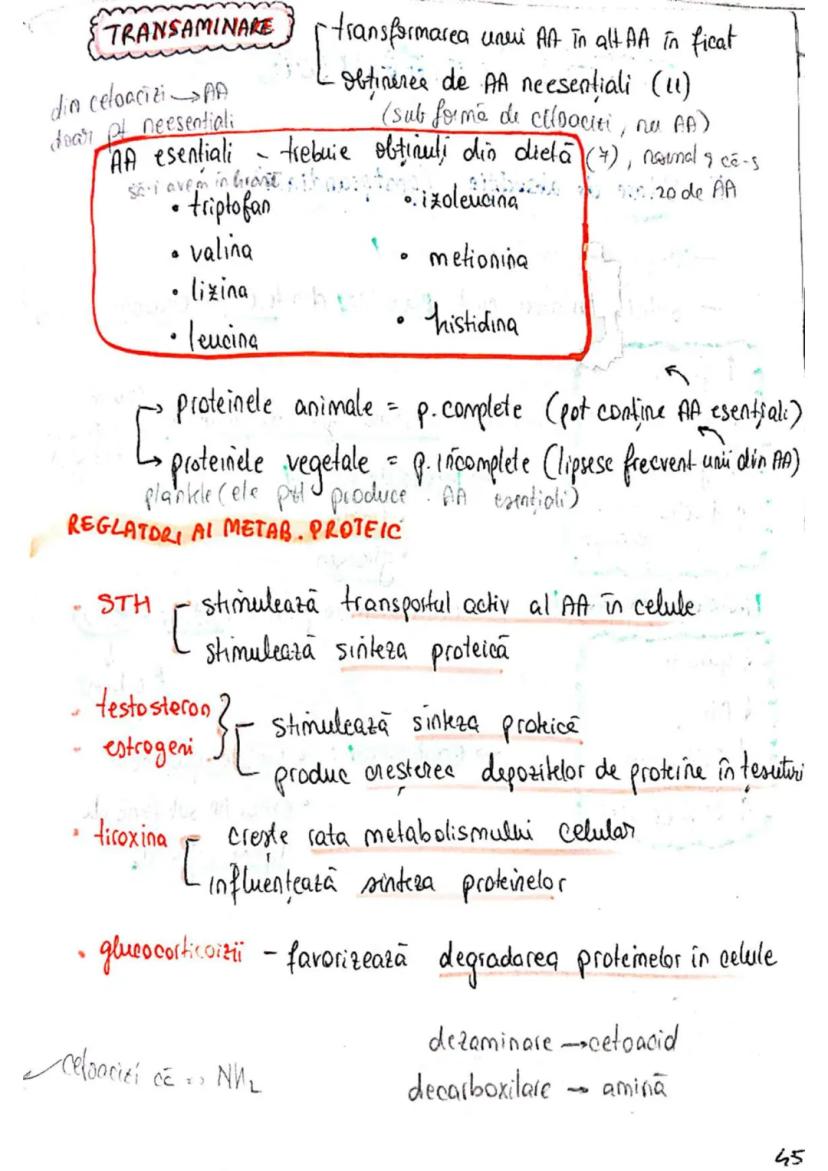 TRANSAMINARE
transformarea unui AA în alt AA în ficat
obținerea de AA neesențiali (11)
(sub formă de cetoacizi, nu AA)
din cetoacizi → AA
doar pt neesențiali
AA esențiali - trebuie obținuți din dietă (7), normal 9 că-s
să-i avem în hrană
20 de AA
• triptofan
• izoleucina
• valina
• metionina
• lizina
• histidina
• leucina
→ proteinele animale = p. complete (pot conține AA esențiali)
→ proteinele vegetale = p. incomplete (lipsesc frecvent unii din AA)
plantele (ele pot produce AA esențiali)
REGLATORI AI METAB. PROTEIC
• STH - stimulează transportul activ al AA în celule
stimulează sinteza proteică
• testosteron
• estrogeni
stimulează sinteza proteică
produc creșterea depozitelor de proteine în țesuturi
• tiroxina - crește rata metabolismului celular
influențează sinteza proteinelor
• glucocorticoizii - favorizează degradarea proteinelor în celule
dezaminare → cetoacid
cetoacizi că NH2
decarboxilare → amină
45